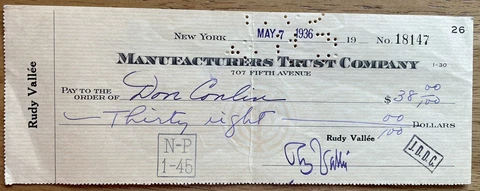 26
NEW YORK MAY 7 1936 19 No. 18147
MANUFACTURERS TRUST COMPANY 1-30
707 FIFTH AVENUE
PAY TO THE
ORDER OF Don Conlin $38 00/100
Thirty eight 00/100 DOLLARS
Rudy Vallée
Rudy Vallée
N-P
1-45
Rudy Vallée
J.D.D.C.